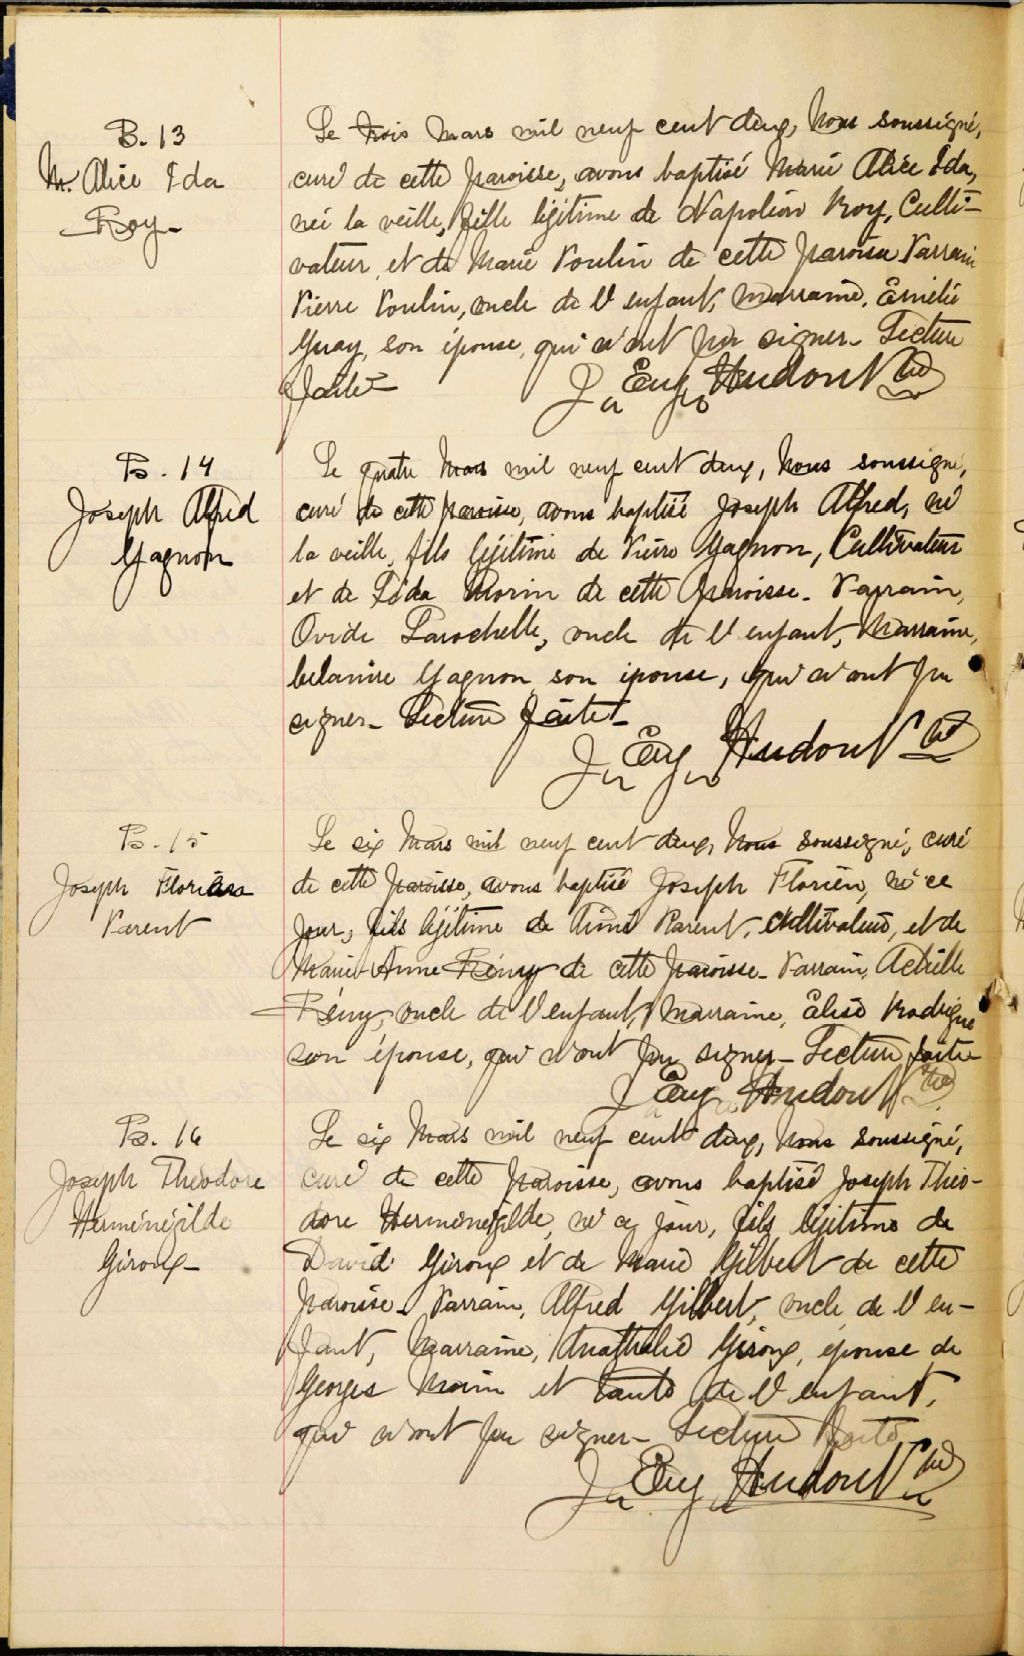 B. 13
M. Alice Ida
Roy -
Le trois Mars mil neuf cent deux, Nous soussigné,
curé de cette paroisse, avons baptisé Marie Alice Ida,
née la veille, fille légitime de Napoléon Roy, Culti-
vateur, et de Marie Poulin de cette paroisse Parrain
Pierre Poulin, oncle de l'enfant, marraine, Emélie
Guay, son épouse, qui n'ont pu signer - Lecture
faite -
J Eug Hudon Ptre
B. 14
Joseph Alfred
Gagnon
Le quatre Mars mil neuf cent deux, Nous soussigné,
curé de cette paroisse, avons baptisé Joseph Alfred, né
la veille, fils légitime de Pierre Gagnon, Cultivateur
et de Léda Morin de cette paroisse - Parrain,
Ovide Larochelle, oncle de l'enfant, Marraine,
Gagnon son épouse, qui n'ont pu
signer - Lecture faite -
J Eug Hudon Ptre
B. 15
Joseph Florien
Parent
Le six Mars mil neuf cent deux, Nous soussigné, curé
de cette paroisse, avons baptisé Joseph Florien, né ce
jour, fils légitime de Aimé Parent, cultivateur, et de
Marie-Anne Rémy de cette paroisse - Parrain, Achille
Rémy, oncle de l'enfant, Marraine, Elise Rodrigue
son épouse, qui n'ont pu signer - Lecture faite
J Eug Hudon Ptre
B. 16
Joseph Théodore
Herménégilde
Giroux -
Le six Mars mil neuf cent deux, Nous soussigné,
curé de cette paroisse, avons baptisé Joseph Théo-
dore Herménégilde, né ce jour, fils légitime de
David Giroux et de Marie Gilbert de cette
paroisse - Parrain, Alfred Gilbert, oncle de l'en-
fant, Marraine, Anathalie Giroux, épouse de
Georges Morin et tante de l'enfant,
qui n'ont pu signer - Lecture faite
J Eug Hudon Ptre